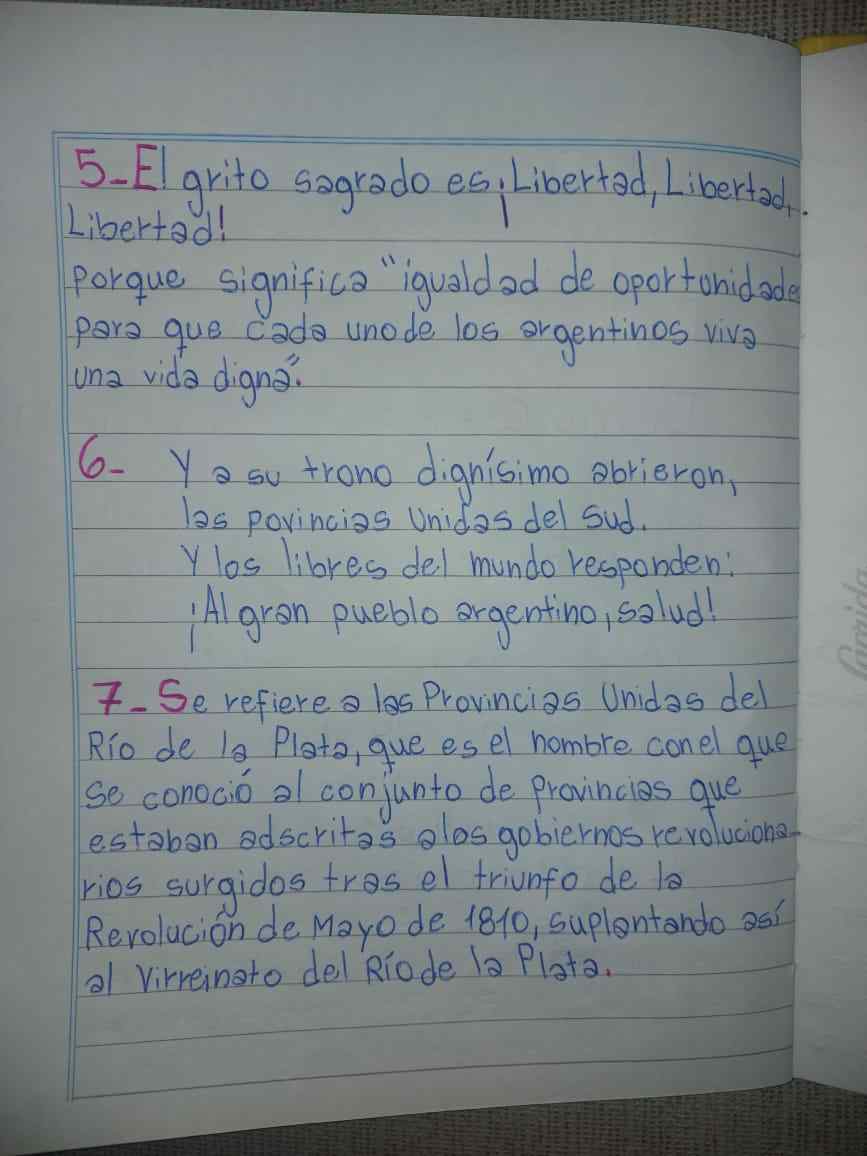 5_ El grito sagrado es ¡Libertad, Libertad,
Libertad!
porque significa "igualdad de oportunidade
para que cada uno de los argentinos viva
una vida digna".
6_ Y a su trono dignísimo abrieron,
las povincias Unidas del Sud.
Y los libres del mundo responden:
¡Al gran pueblo argentino, salud!
7_ Se refiere a las Provincias Unidas del
Río de la Plata, que es el nombre con el que
se conoció al conjunto de provincias que
estaban adscritas a los gobiernos revoluciona-
rios surgidos tras el triunfo de la
Revolución de Mayo de 1810, suplantando así
al Virreinato del Río de la Plata.